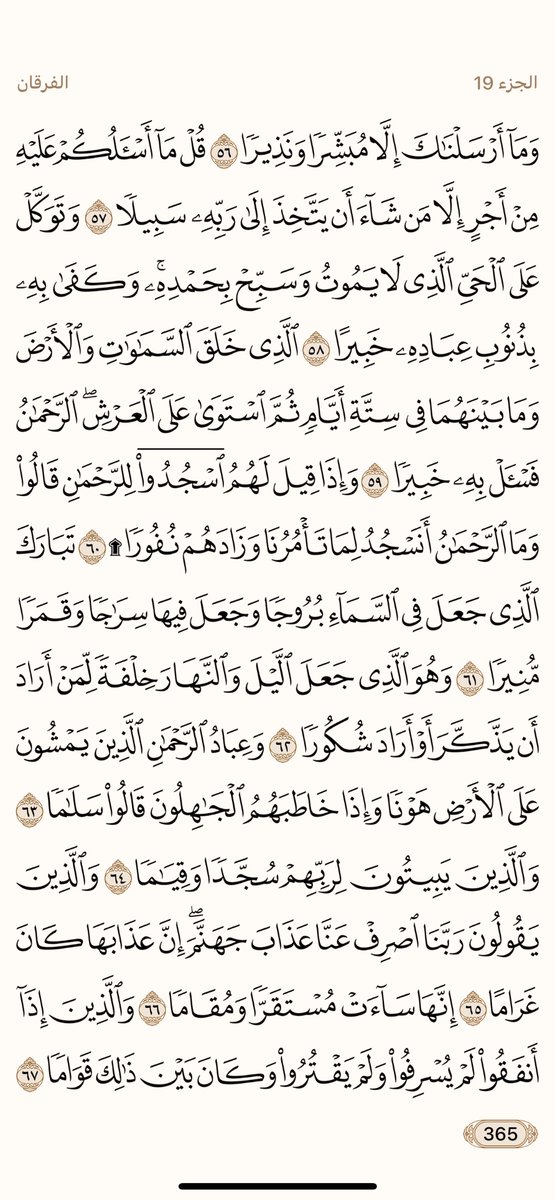 الجزء 19
الفرقان
وَمَآ أَرۡسَلۡنَٰكَ إِلَّا مُبَشِّرٗا وَنَذِيرٗا ٥٦ قُلۡ مَآ أَسۡـَٔلُكُمۡ عَلَيۡهِ
مِنۡ أَجۡرٍ إِلَّا مَن شَآءَ أَن يَتَّخِذَ إِلَىٰ رَبِّهِۦ سَبِيلٗا ٥٧ وَتَوَكَّلۡ
عَلَى ٱلۡحَيِّ ٱلَّذِي لَا يَمُوتُ وَسَبِّحۡ بِحَمۡدِهِۦۚ وَكَفَىٰ بِهِۦ
بِذُنُوبِ عِبَادِهِۦ خَبِيرًا ٥٨ ٱلَّذِي خَلَقَ ٱلسَّمَٰوَٰتِ وَٱلۡأَرۡضَ
وَمَا بَيۡنَهُمَا فِي سِتَّةِ أَيَّامٖ ثُمَّ ٱسۡتَوَىٰ عَلَى ٱلۡعَرۡشِۖ ٱلرَّحۡمَٰنُ
فَسۡـَٔلۡ بِهِۦ خَبِيرٗا ٥٩ وَإِذَا قِيلَ لَهُمُ ٱسۡجُدُواْۤ لِلرَّحۡمَٰنِ قَالُواْ
وَمَا ٱلرَّحۡمَٰنُ أَنَسۡجُدُ لِمَا تَأۡمُرُنَا وَزَادَهُمۡ نُفُورٗا ۩ ٦٠ تَبَارَكَ
ٱلَّذِي جَعَلَ فِي ٱلسَّمَآءِ بُرُوجٗا وَجَعَلَ فِيهَا سِرَٰجٗا وَقَمَرٗا
مُّنِيرٗا ٦١ وَهُوَ ٱلَّذِي جَعَلَ ٱلَّيۡلَ وَٱلنَّهَارَ خِلۡفَةٗ لِّمَنۡ أَرَادَ
أَن يَذَّكَّرَ أَوۡ أَرَادَ شُكُورٗا ٦٢ وَعِبَادُ ٱلرَّحۡمَٰنِ ٱلَّذِينَ يَمۡشُونَ
عَلَى ٱلۡأَرۡضِ هَوۡنٗا وَإِذَا خَاطَبَهُمُ ٱلۡجَٰهِلُونَ قَالُواْ سَلَٰمٗا ٦٣
وَٱلَّذِينَ يَبِيتُونَ لِرَبِّهِمۡ سُجَّدٗا وَقِيَٰمٗا ٦٤ وَٱلَّذِينَ
يَقُولُونَ رَبَّنَا ٱصۡرِفۡ عَنَّا عَذَابَ جَهَنَّمَۖ إِنَّ عَذَابَهَا كَانَ
غَرَامًا ٦٥ إِنَّهَا سَآءَتۡ مُسۡتَقَرّٗا وَمُقَامٗا ٦٦ وَٱلَّذِينَ إِذَآ
أَنفَقُواْ لَمۡ يُسۡرِفُواْ وَلَمۡ يَقۡتُرُواْ وَكَانَ بَيۡنَ ذَٰلِكَ قَوَامٗا ٦٧
365